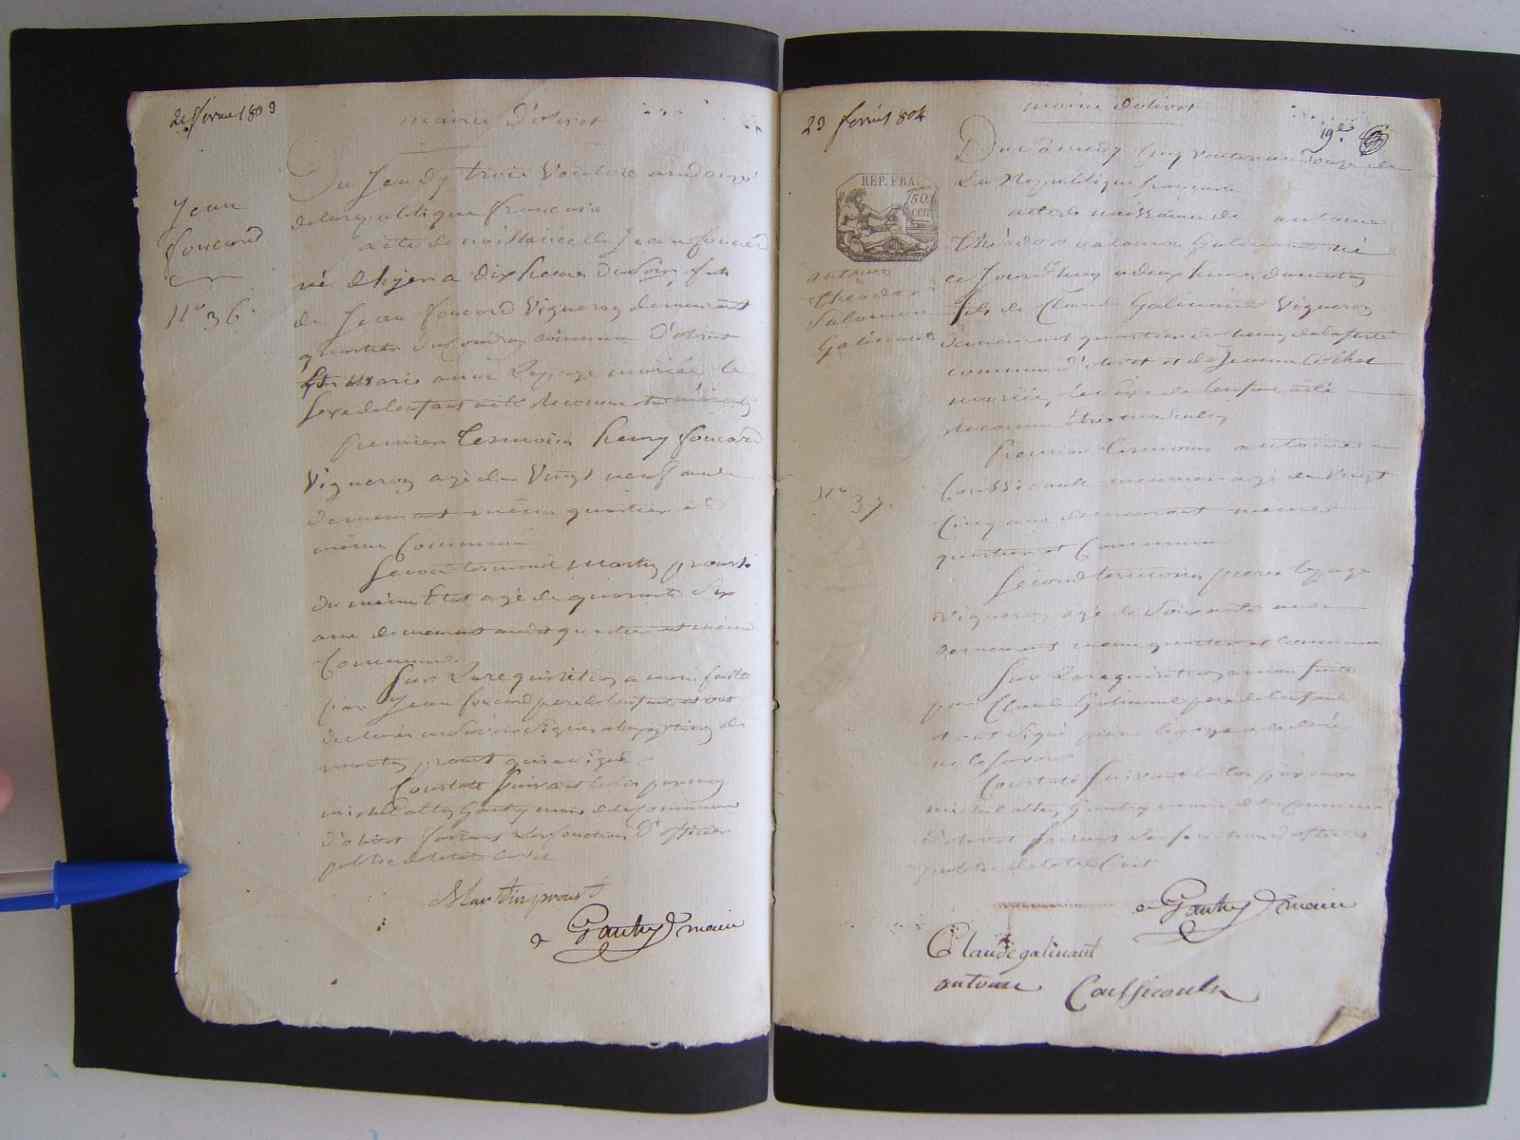 21 fevrier 1803
mairie d'olivet
Du Jeudy trois Ventose an douze
de la republique francaise
acte de naissance de Jean foucard
né d'hyer a dix heures du soir fils
de Jean foucard Vigneron demeurant
quartier du Coudray commune d'olivet
Et marie anne Lepage mariée le
sexe de l'enfant a été reconnu etre masculin
Jean
foucard
N° 36.
premier temoin henry foucard
Vigneron agé de Vingt neuf ans
demeurant même quartier et
même Commune
Second temoin Martin proust
du même Etat agé de quarante six
ans demeurant audit quartier et même
Commune
Sur la requisition a nous faite
par Jean foucard pere de l'enfant et ont
declarés ne savoir signer a l'exception de
martin proust qui a signé
Constaté suivant la loi par moy
michel Gautry maire de la Commune
d'olivet faisant les fonctions d'officier
public de l'etat Civil
Martin proust
Gautry maire
23 fevrier 1804
mairie d'olivet
19e
Du cinq Ventose an douze de
La Republique francaise
REP. FRA.
50
CEN
acte de naissance de antoine
théodore salomon Galinant né
ce Jourd'huy a deux heures du matin
fils de Claude Galinant Vigneron
demeurant quartier de la ferté
commune d'olivet et de Jeanne
mariée, le sexe de l'enfant a été
reconnu etre masculin
antoine
theodore
Salomon
Galinant
N° 37.
Premier temoin antoine
Coussicault agé de Vingt
Cinq ans demeurant meme
quartier et Commune
Second temoin pierre lepage
Vigneron agé de soixante ans
demeurant meme quartier et Commune
Sur la requisition a nous faite
par Claude Galinant pere de l'enfant
et ont signé pierre lepage a declaré
ne le savoir
Constaté suivant la loi par moi
michel Gautry maire de la Commune
d'olivet faisant les fonctions d'officier
public de l'etat Civil
Gautry maire
Claude galinant
antoine Coussicault